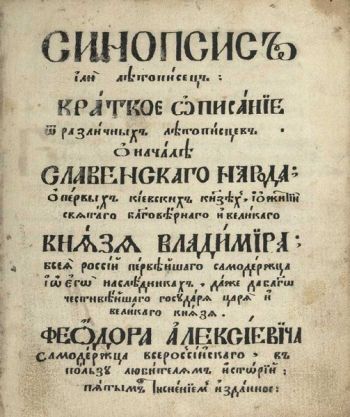 СИНОПСИСЪ
їлѝ лѣтописецъ :
КРА́ТКОЕ Ѿ ПИСА́НЇЕ
ѿ разли́чныхъ лѣтописцевъ .
Ѡ нача́лѣ
СЛАВЕ́НСКАГО НАРО́ДА ;
Ѡ первыхъ кїевскихъ кн҃зѣхъ . ї Ѡ житїи
свята́гѡ бл҃говѣ́рнагѡ и вели́кагѡ
КНЯ́ЗЯ ВЛАДИ́МІРА ;
всея̀ россі́й первѣ́йшагѡ самоде́ржца
ї Ѡ єгѡ̀ наслѣ́дникахъ . да́же до бл҃го
честивѣ́йшагѡ госуда́ря царя̀ и
вели́кагѡ кня́зя .
ФЕѠ́ДОРА А̓ЛЕѮІ́ЕВИЧА
самоде́ржца всероссі́йскагѡ . въ
по́льзу люби́телямъ и̓сто́рїй ;
пя́тымъ тисне́нїемъ и́зданное :